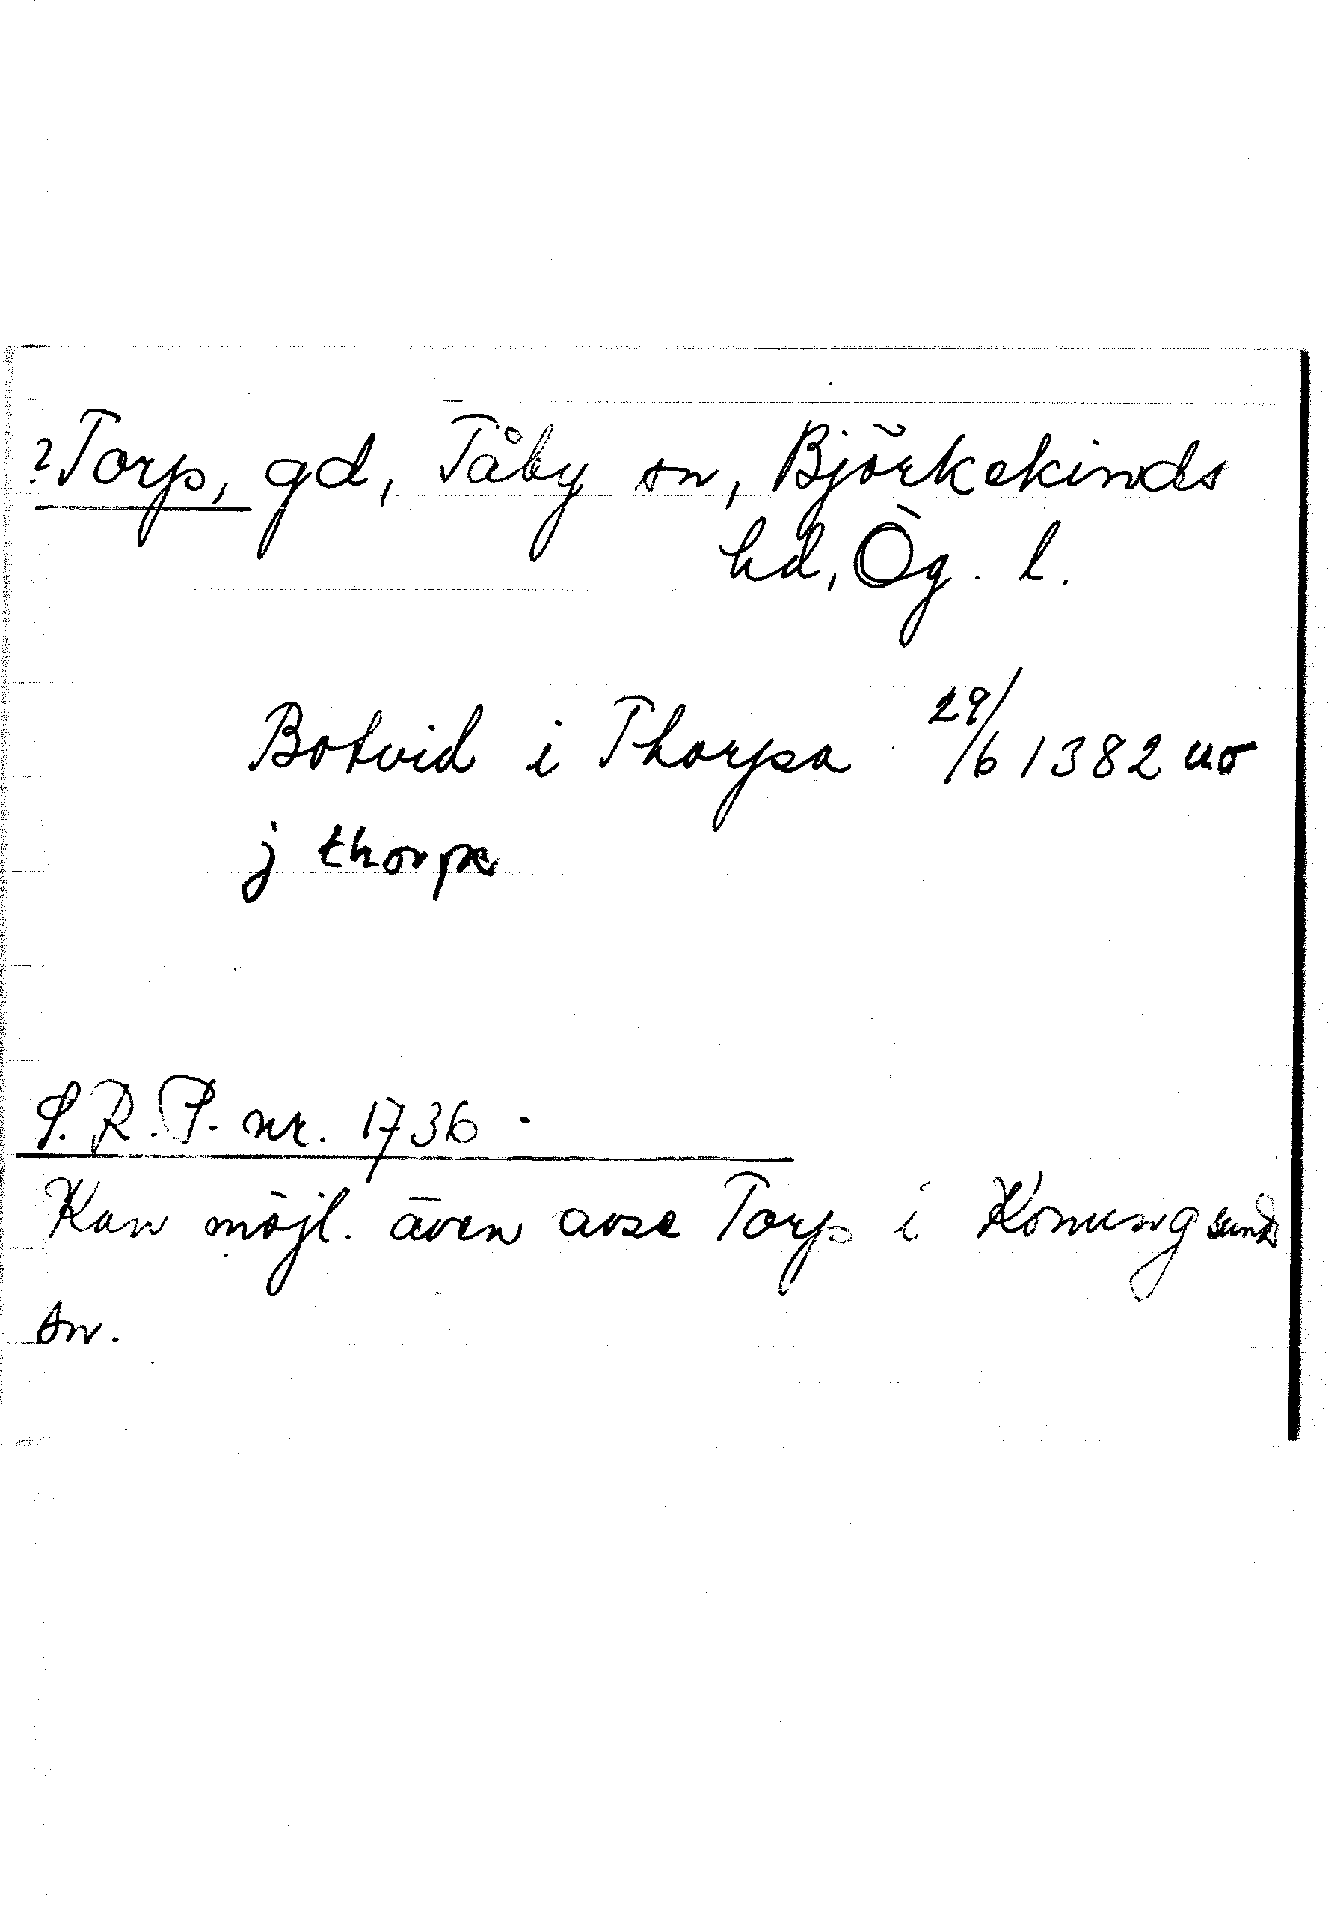 ?Torp, gd, Tåby sn, Björkekinds
hd, Ög. l.
Botvid i Thorpa 29/6 1382 uo
j thorpa
S.R.P. nr. 1736
Kan möjl. även avse Torp i Konungsunds
sn.